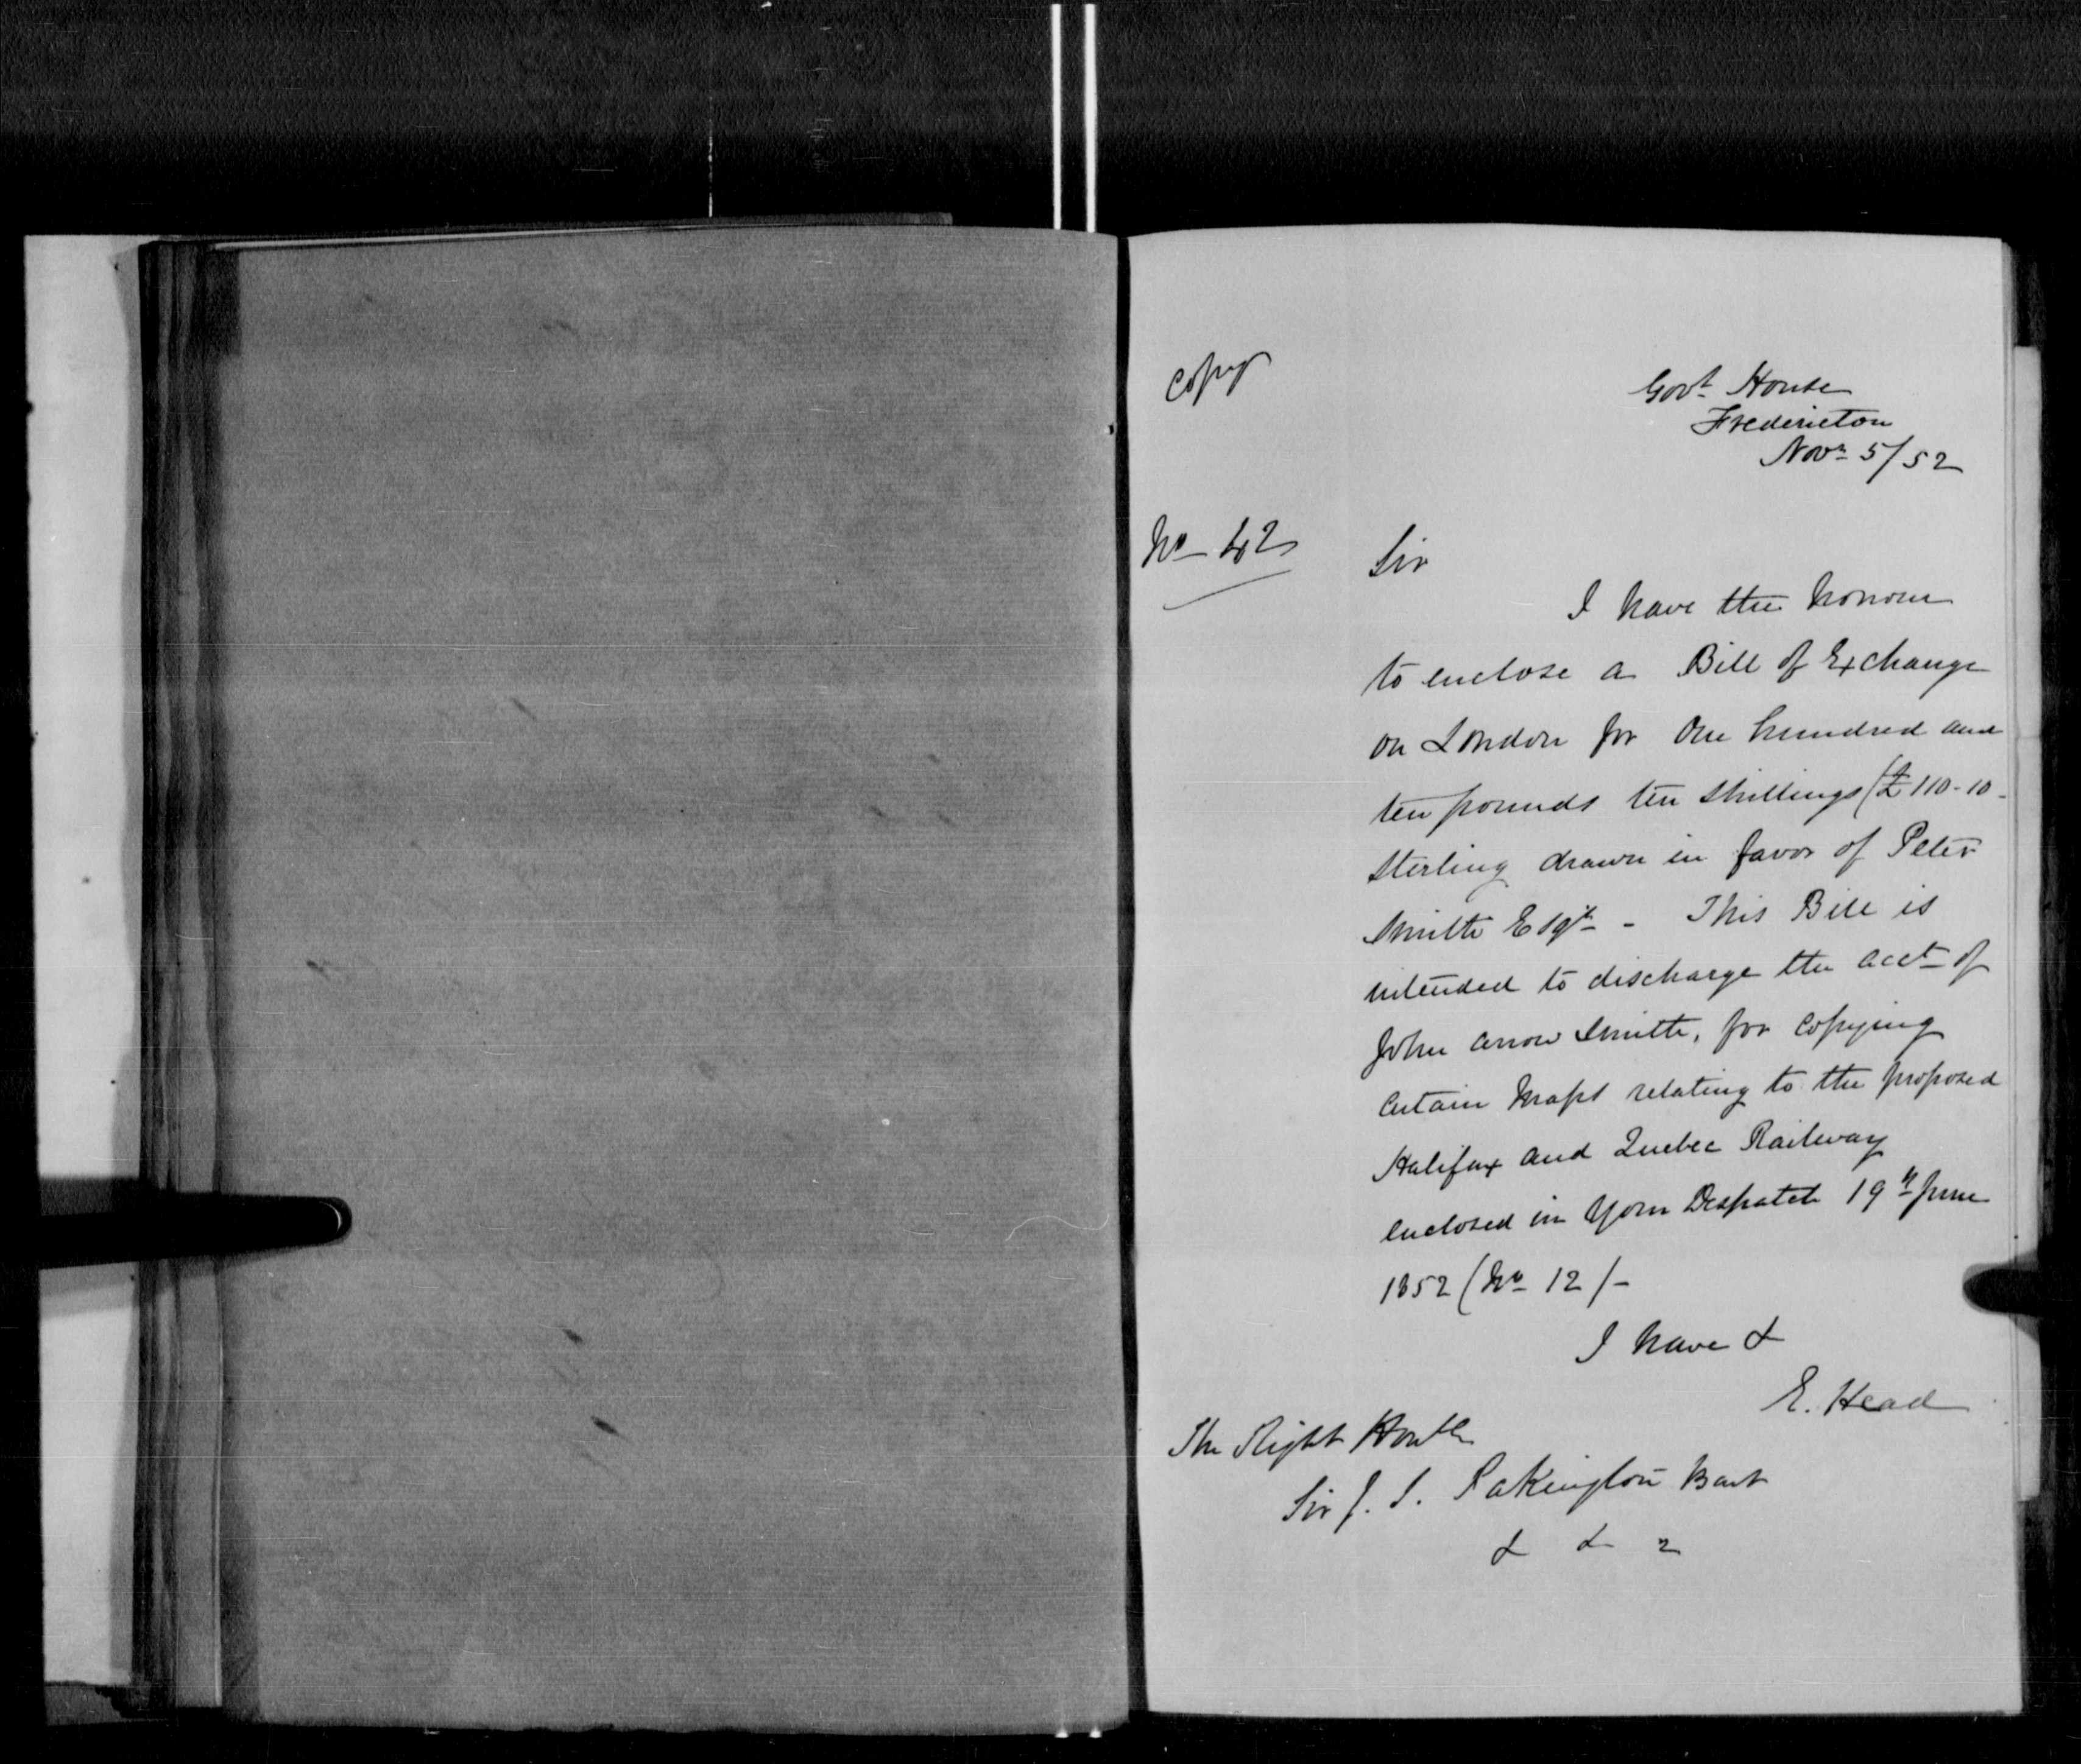 Copy
Govt. House
Fredericton
Novr 5/52
No 42
Sir
I have the honour
to enclose a Bill of Exchange
on London for One hundred and
ten pounds ten shillings (£110-10-
Sterling drawn in favor of Peter
Smith Esqr - This Bill is
intended to discharge the acct of
John Arrow Smith, for copying
certain Maps relating to the proposed
Halifax and Quebec Railway
enclosed in your Despatch 19th June
1852 (No 12/-
I have &
E. Head
The Right Honble
Sir J. S. Pakington Bart
& & &